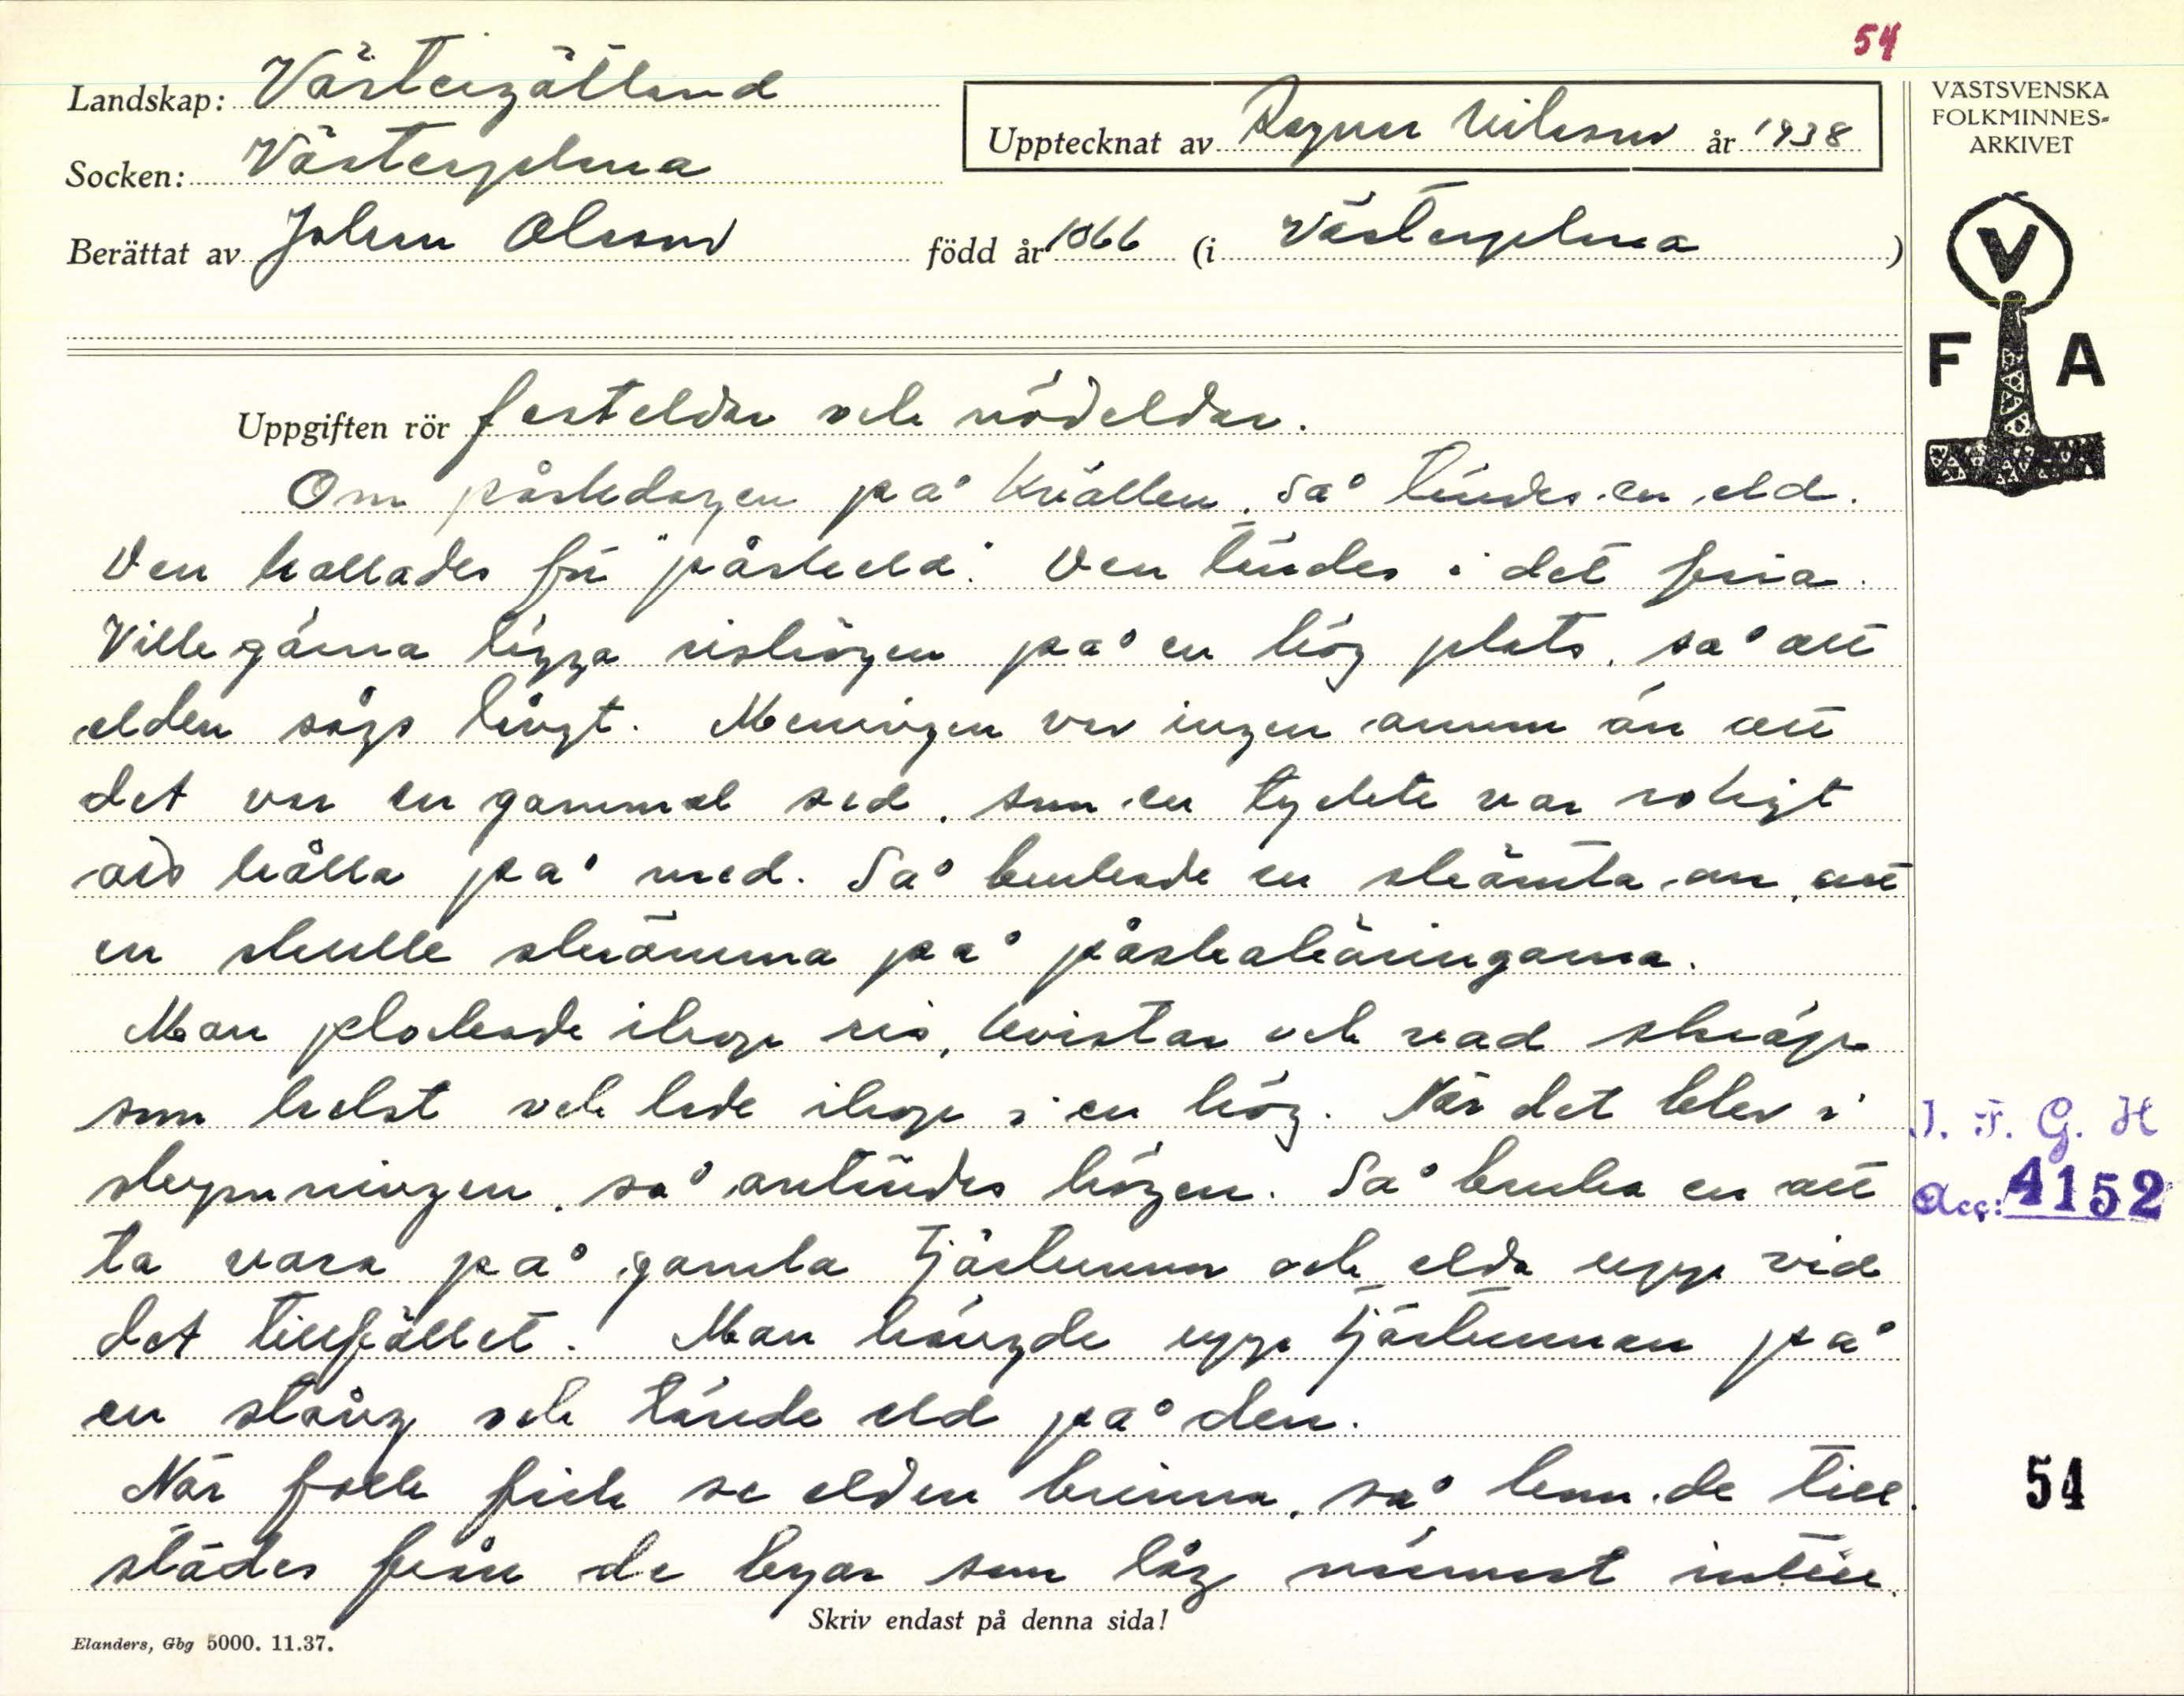 54
Landskap: Västergötland
Socken: Västerplana
Upptecknat av Ragnar Nilsson år 1938
Berättat av Johan Olsson född år 1866 (i Västerplana)
VÄSTSVENSKA
FOLKMINNES-
ARKIVET
V
F A
Uppgiften rör festeldar och nödeldar.
Om påskedagen på kvällen, så tändes en eld.
Den kallades för "påskeld". Den tändes i det fria.
Ville gärna lägga rishögen på en hög plats, så att
elden sågs långt. Meningen var ingen annan än att
det var en gammal sed, som en tyckte var roligt
att hålla på med. Så brukade en skämta om, att
en skulle skrämma på påskakäringarna.
Man plockade ihop ris, kvistar och vad skräp
som helst och lade ihop i en hög. När det blev i
skymningen, så antändes högen. Så bruka en att
ta vara på gamla tjärtunnor och elda upp vid
det tillfället. Man hängde upp tjärtunnan på
en stång och tände eld på den.
När folk fick se elden brinna, så kom de till
städes från de byar som låg närmast intill.
I. F. G. H
Acc: 4152
54
Skriv endast på denna sida!
Elanders, Gbg 5000. 11.37.